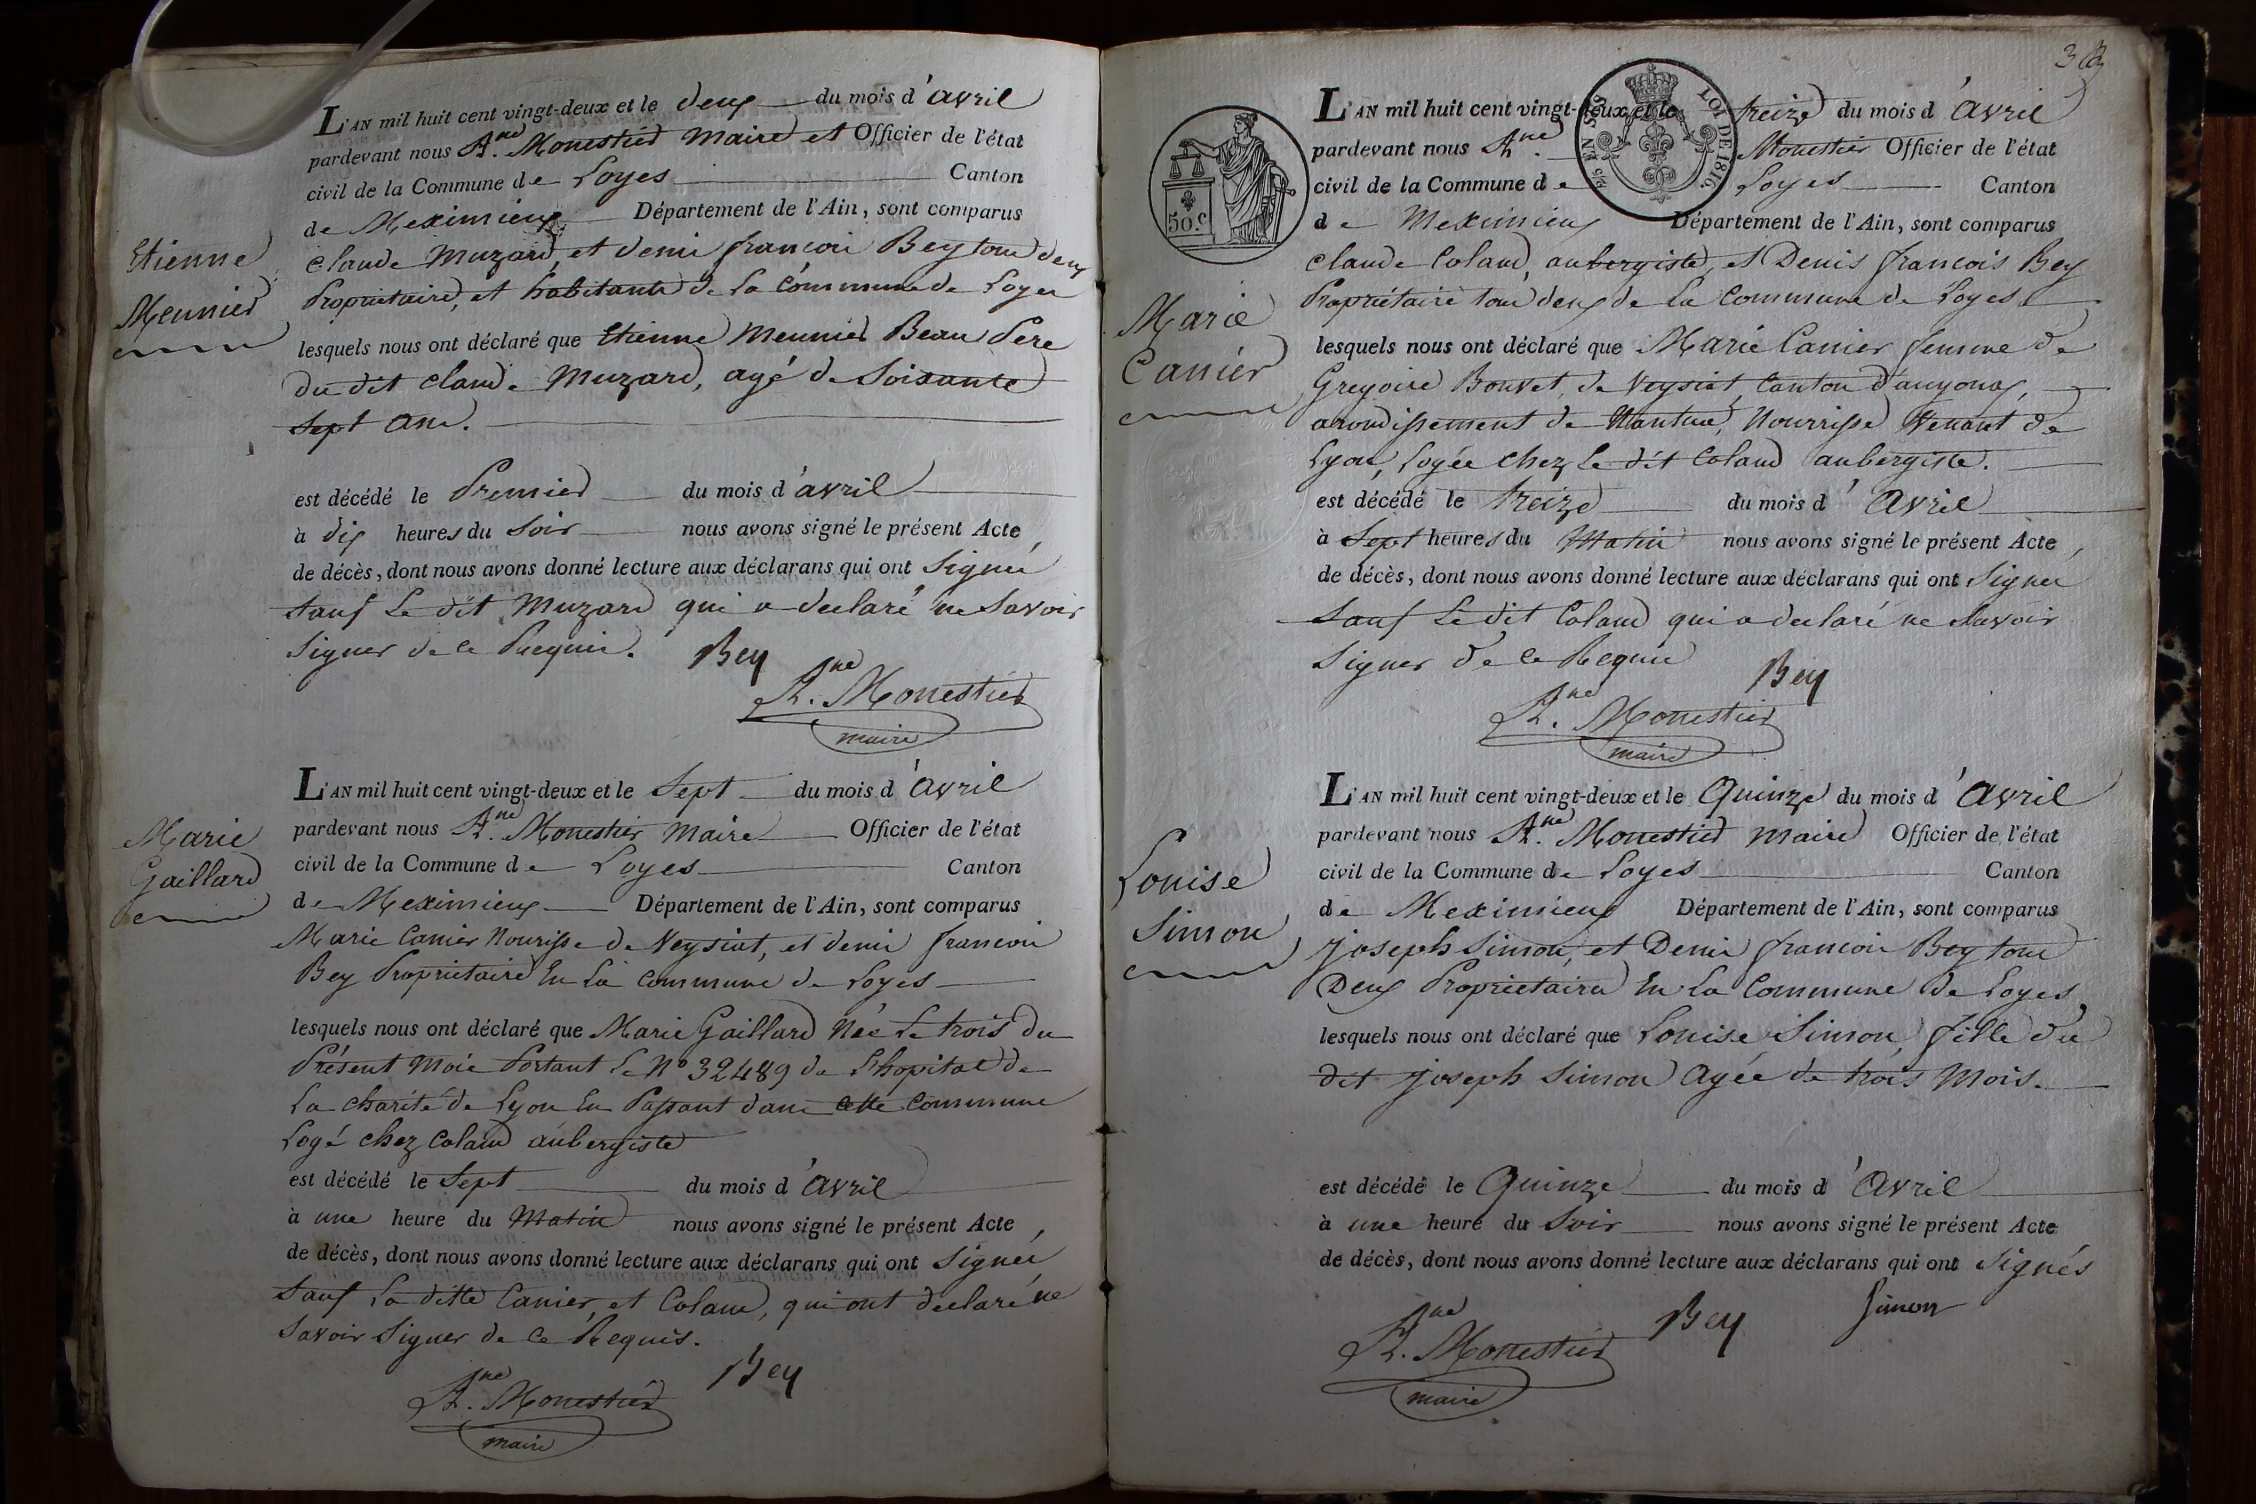 L'AN mil huit cent vingt-deux et le deux du mois d'avril
pardevant nous A.ne Monestier maire et Officier de l'état
civil de la Commune de Loyes Canton
de Meximieux Département de l'Ain, sont comparus
Etienne
Meunier
claude Muzard, et denis francois Bey tous deux
Propriétaires, et habitants de la Commune de Loyes
lesquels nous ont déclaré que Etienne Meunier Beau Pere
du dit claude Muzard, agé de Soixante
Sept ans.
est décédé le Premier du mois d'avril
à dix heures du Soir nous avons signé le présent Acte
de décès, dont nous avons donné lecture aux déclarans qui ont Signés
Sauf Le dit Muzard qui a declaré ne Savoir
Signer de ce Requis. Bey
A.ne Monestier
maire
L'AN mil huit cent vingt-deux et le Sept du mois d'avril
pardevant nous A.ne Monestier maire Officier de l'état
civil de la Commune de Loyes Canton
de Meximieux Département de l'Ain, sont comparus
Marie
Gaillard
Marie Canier Nourisse de Veysiat, et denis francois
Bey Propriétaire En La Commune de Loyes
lesquels nous ont déclaré que Marie Gaillard Née Le trois du
Présent Mois Portant Le N° 32489 de L'hopital de
La charité de Lyon En Passant dans cette Commune
Logé chez Coland aubergiste
est décédé le Sept du mois d'avril
à une heure du Matin nous avons signé le présent Acte,
de décès, dont nous avons donné lecture aux déclarans qui ont Signés
Sauf La ditte Canier, et Coland, qui ont declaré ne
Savoir Signer de ce Requis.
Bey
A.ne Monestier
maire
38
50.c
EN SUS
LOI DE 1816.
L'AN mil huit cent vingt-deux et le treize du mois d'avril
pardevant nous A.ne Monestier Officier de l'état
civil de la Commune de Loyes Canton
de Meximieux Département de l'Ain, sont comparus
Marie
Canier
claude Coland, aubergiste, et Denis francois Bey
Propriétaire tous deux de La Commune de Loyes
lesquels nous ont déclaré que Marie Canier femme de
Gregoire Bouvet, de Veysiat, Canton d'auyonax,
arondissement de Nantua, Nourrisse Venant de
Lyon, Logée chez Le dit Coland aubergiste.
est décédé le treize du mois d'Avril
à Sept heures du Matin nous avons signé le présent Acte,
de décès, dont nous avons donné lecture aux déclarans qui ont Signer
Sauf Le dit Coland qui a declaré ne Savoir
Signer de ce Requis
Bey
A.ne Monestier
maire
L'AN mil huit cent vingt-deux et le Quinze du mois d'Avril
pardevant nous A.ne Monestier maire Officier de l'état
civil de la Commune de Loyes Canton
de Meximieux Département de l'Ain, sont comparus
Louise
Simon
joseph Simon, et Denis francois Bey tous
Deux Propriétaires En La Commune de Loyes,
lesquels nous ont déclaré que Louise Simon, fille du
dit joseph Simon Agée de trois Mois.
est décédé le Quinze du mois d'Avril
à une heure du Soir nous avons signé le présent Acte
de décès, dont nous avons donné lecture aux déclarans qui ont Signés
Simon
Bey
A.ne Monestier
maire